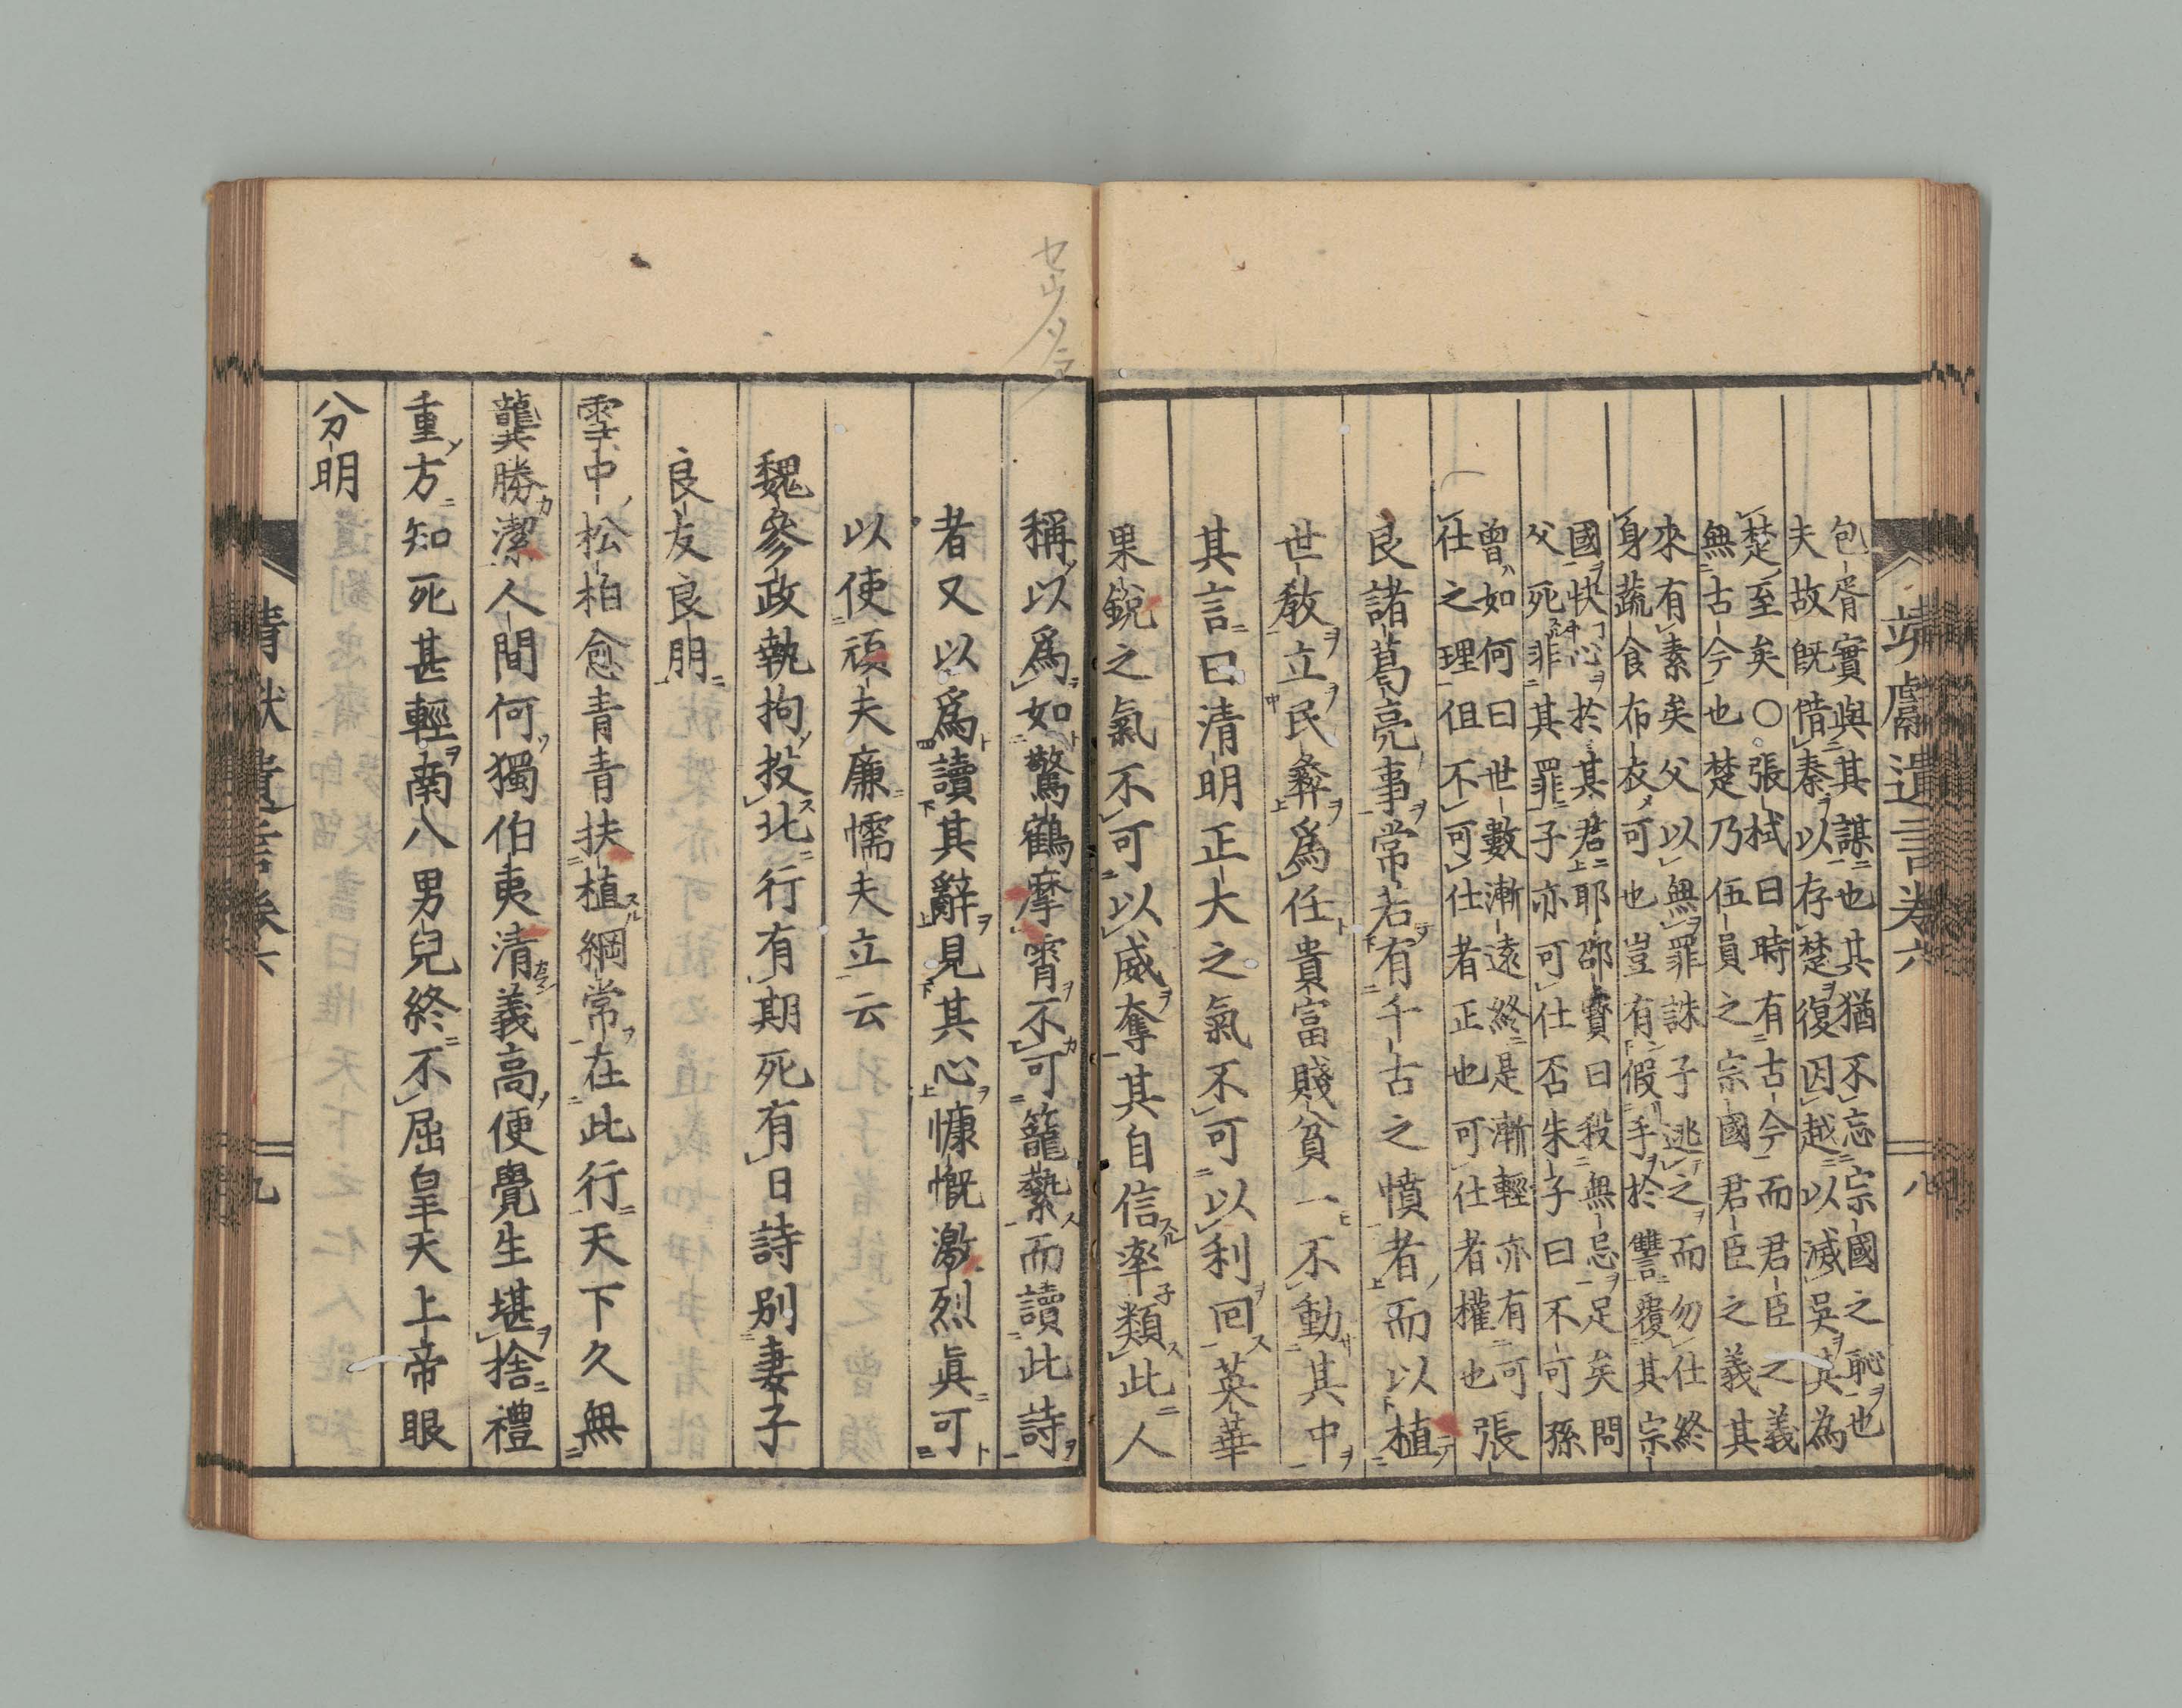 靖獻遺言卷六 八
包胥實與其謀也其猶不忘宗國之恥也
夫故既借秦以存楚復因越以滅吳其為
楚至矣○張栻曰時有古今而君臣之義
無古今也楚乃伍員之宗國君臣之義其
來有素矣父以無罪誅子逃之而勿仕終
身蔬食布衣可也豈有假手於讐覆其宗
國快心於其君耶邵寶曰殺無忌足矣問
父死非其罪子亦可仕否朱子曰不可孫
曾如何曰世數漸遠終是漸輕亦有可
仕之理但不可仕者正也可仕者權也
張
良諸葛亮事常若有千古之憤者而以植
世敎立民彝爲任貴富賤貧一不動其中
其言曰清明正大之氣不可以利回英華
果銳之氣不可以威奪其自信率類此人
稱以爲如驚鶴摩霄不可籠縶而讀此詩
者又以爲讀其辭見其心慷慨激烈眞可
以使頑夫廉懦夫立云
魏參政執拘投北行有期死有日詩別妻子
良友良朋
雪中松柏愈青青扶植綱常在此行天下久無
龔勝潔人間何獨伯夷清義高便覺生堪捨禮
重方知死甚輕南八男兒終不屈皇天上帝眼
分明
靖獻遺言卷六 九